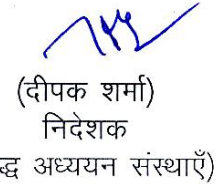 (दीपक शर्मा)
निदेशक
अध्ययन संस्थाएँ)